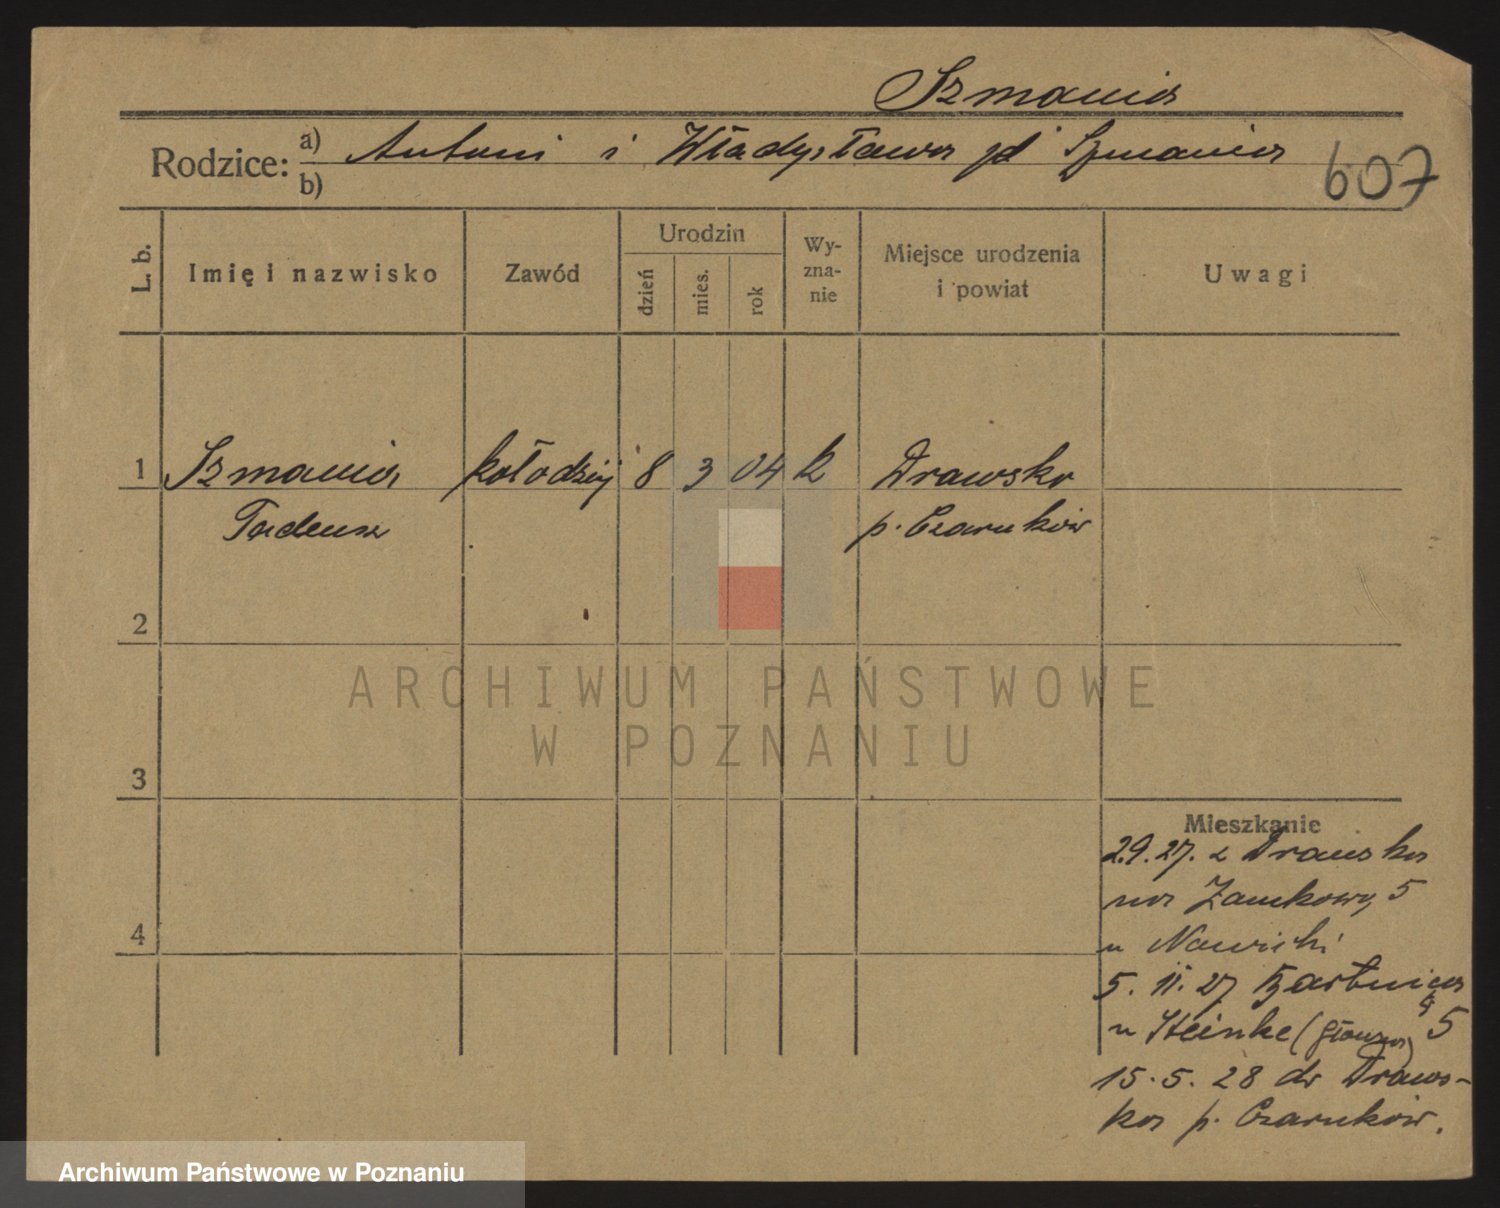 Szmania
Rodzice: a) Antoni i Władysława zd Szmania
b)
607
L. b.
Imię i nazwisko
Zawód
Urodzin
dzień
mies.
rok
Wy-
zna-
nie
Miejsce urodzenia
i powiat
Uwagi
1 Szmania kołodziej 8 3 04 k Drawsko
Tadeusz p. Czarnków
2
ARCHIWUM PAŃSTWOWE
W POZNANIU
3
Mieszkanie
2.9.27. z Drawska
na Zamkową 5
4
u Nawicki
5. 11. 27
u Heinke 5
15. 5. 28 do Draws-
ka p. Czarnków.
Archiwum Państwowe w Poznaniu